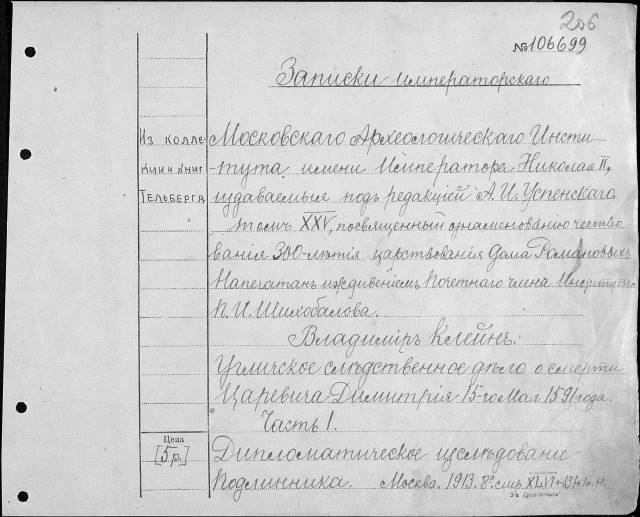 206
№106699
Записки императорскаго
Из колле
кции книг
Тельберга
Московскаго Археологическаго Инсти-
тута имени Императора Николая II,
издаваемыя подъ редакціей А. И. Успенскаго
томъ XXV, посвященный ознаменованію чество
ванія 300-лѣтія царствованія Дома Романовыхъ
Напечатан иждивеніемъ Почетнаго члена Института
П. И. Шихобалова.
Владиміръ Клейнъ.
Угличское слѣдственное дѣло о смерти
Царевича Димитрія 15-го Мая 1591 года.
Часть I.
Цена
[5 р.]
Дипломатическое изслѣдованіе
подлинника. Москва. 1913. 8°.